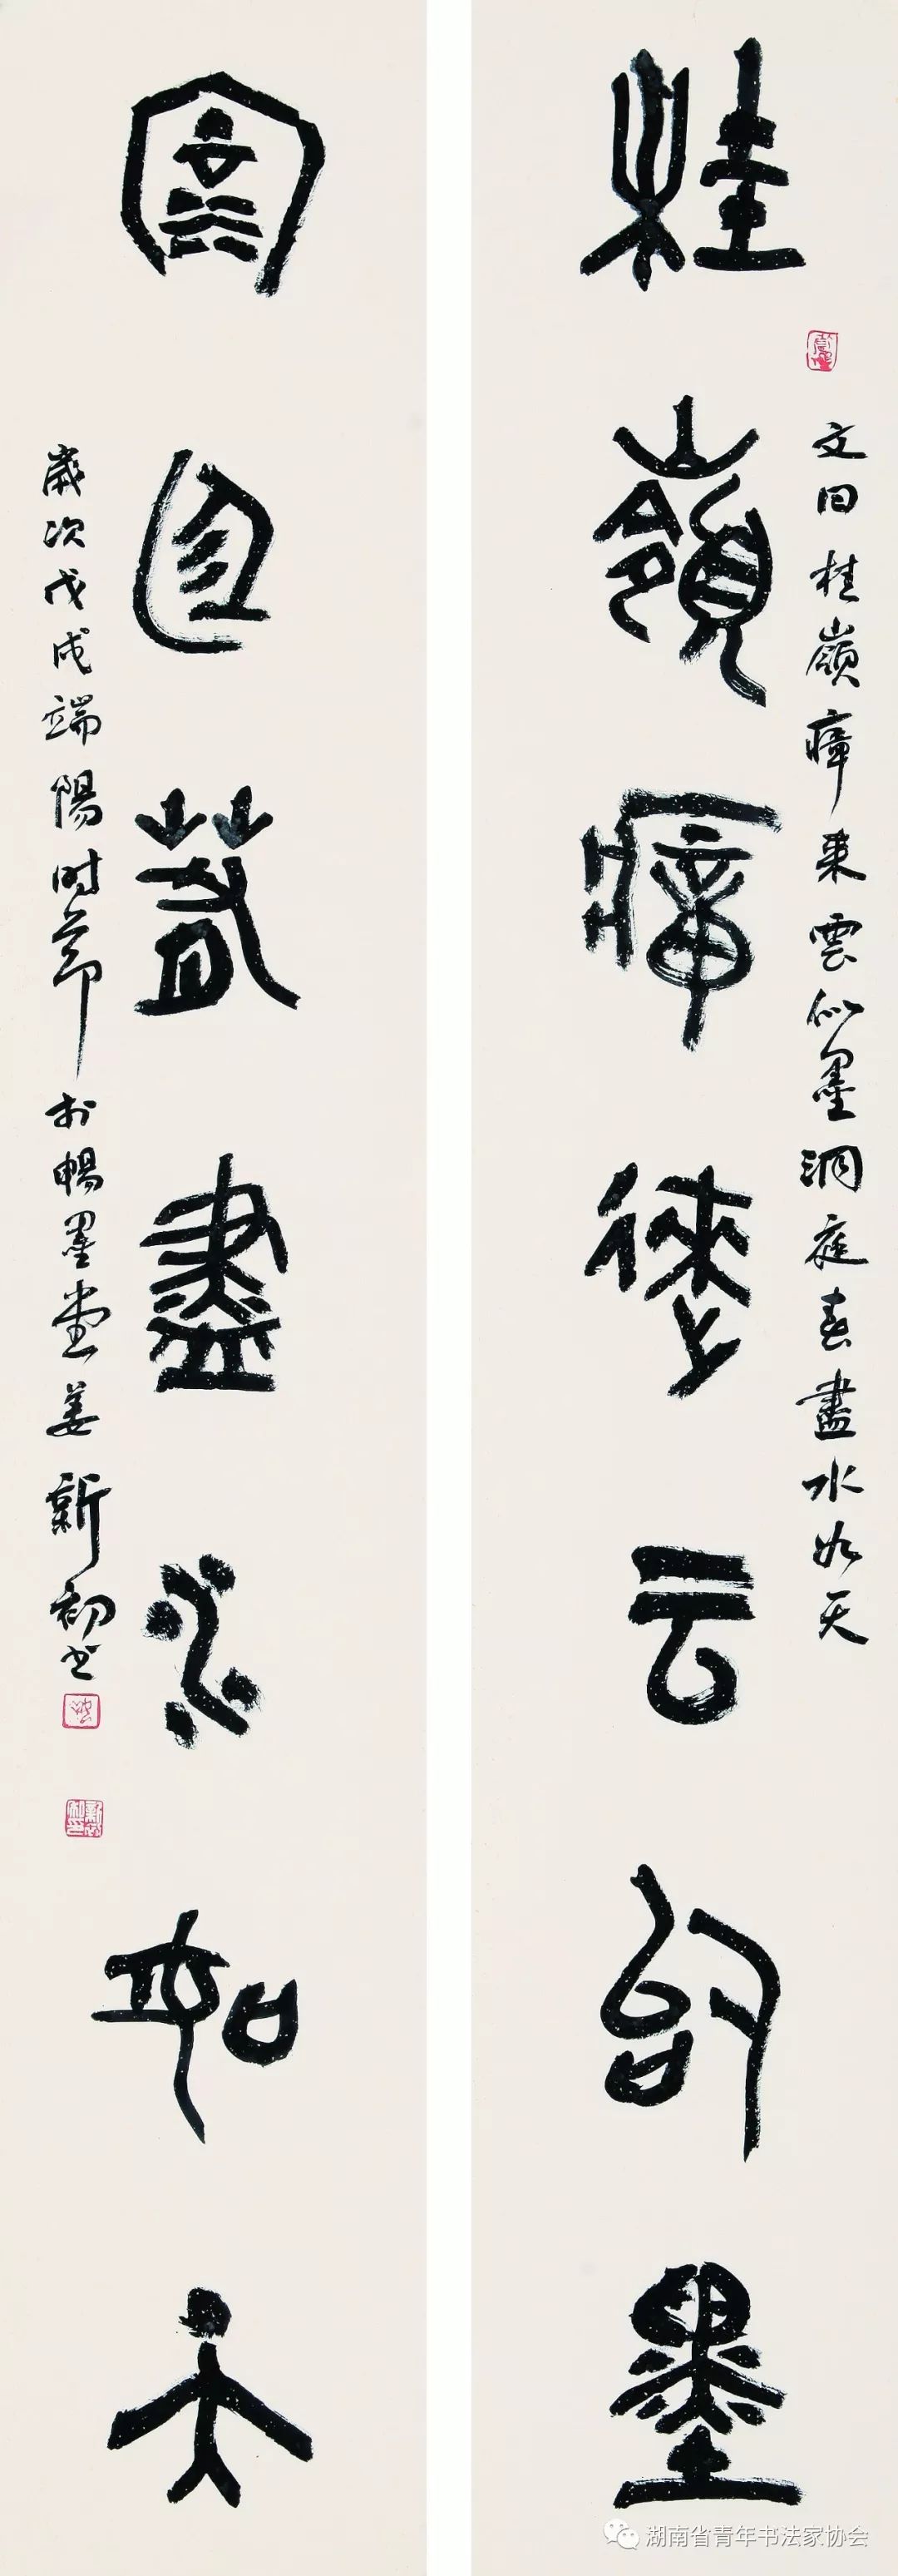 文曰桂嶺瘴來雲似墨洞庭春盡水如天
桂嶺瘴來云似墨
洞庭春盡水如天
歲次戊戌端陽时節於暢墨堂姜新初书
湖南省青年书法家协会